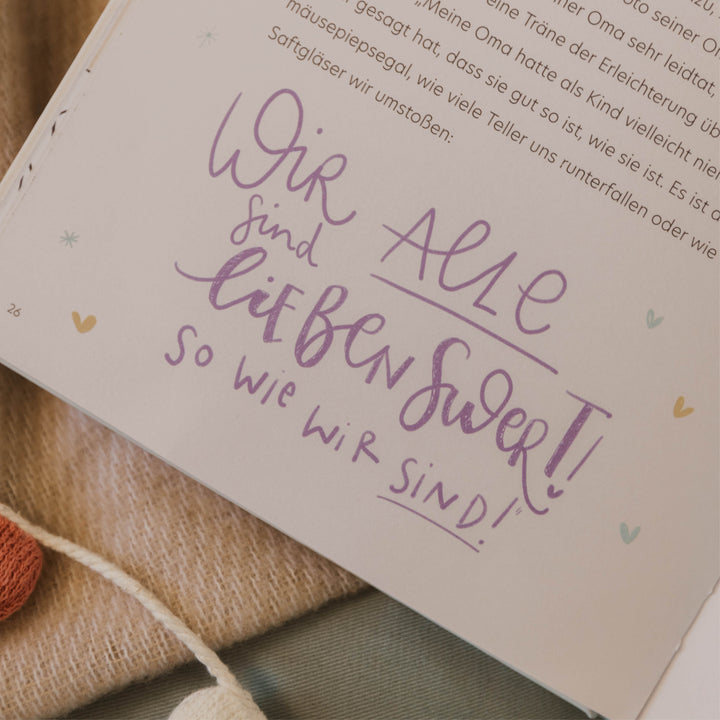 zu,
oto seiner O
eine Träne der Erleichterung üb
iner Oma sehr leidtat,
„Meine Oma hatte als Kind vielleicht nie
gesagt hat, dass sie gut so ist, wie sie ist. Es ist
mäusepiepsegal, wie viele Teller uns runterfallen oder wie
Saftgläser wir umstoßen:
WiR ALLE
sind
LiEBENSWERT!
SO Wie WiR SiND!"
26